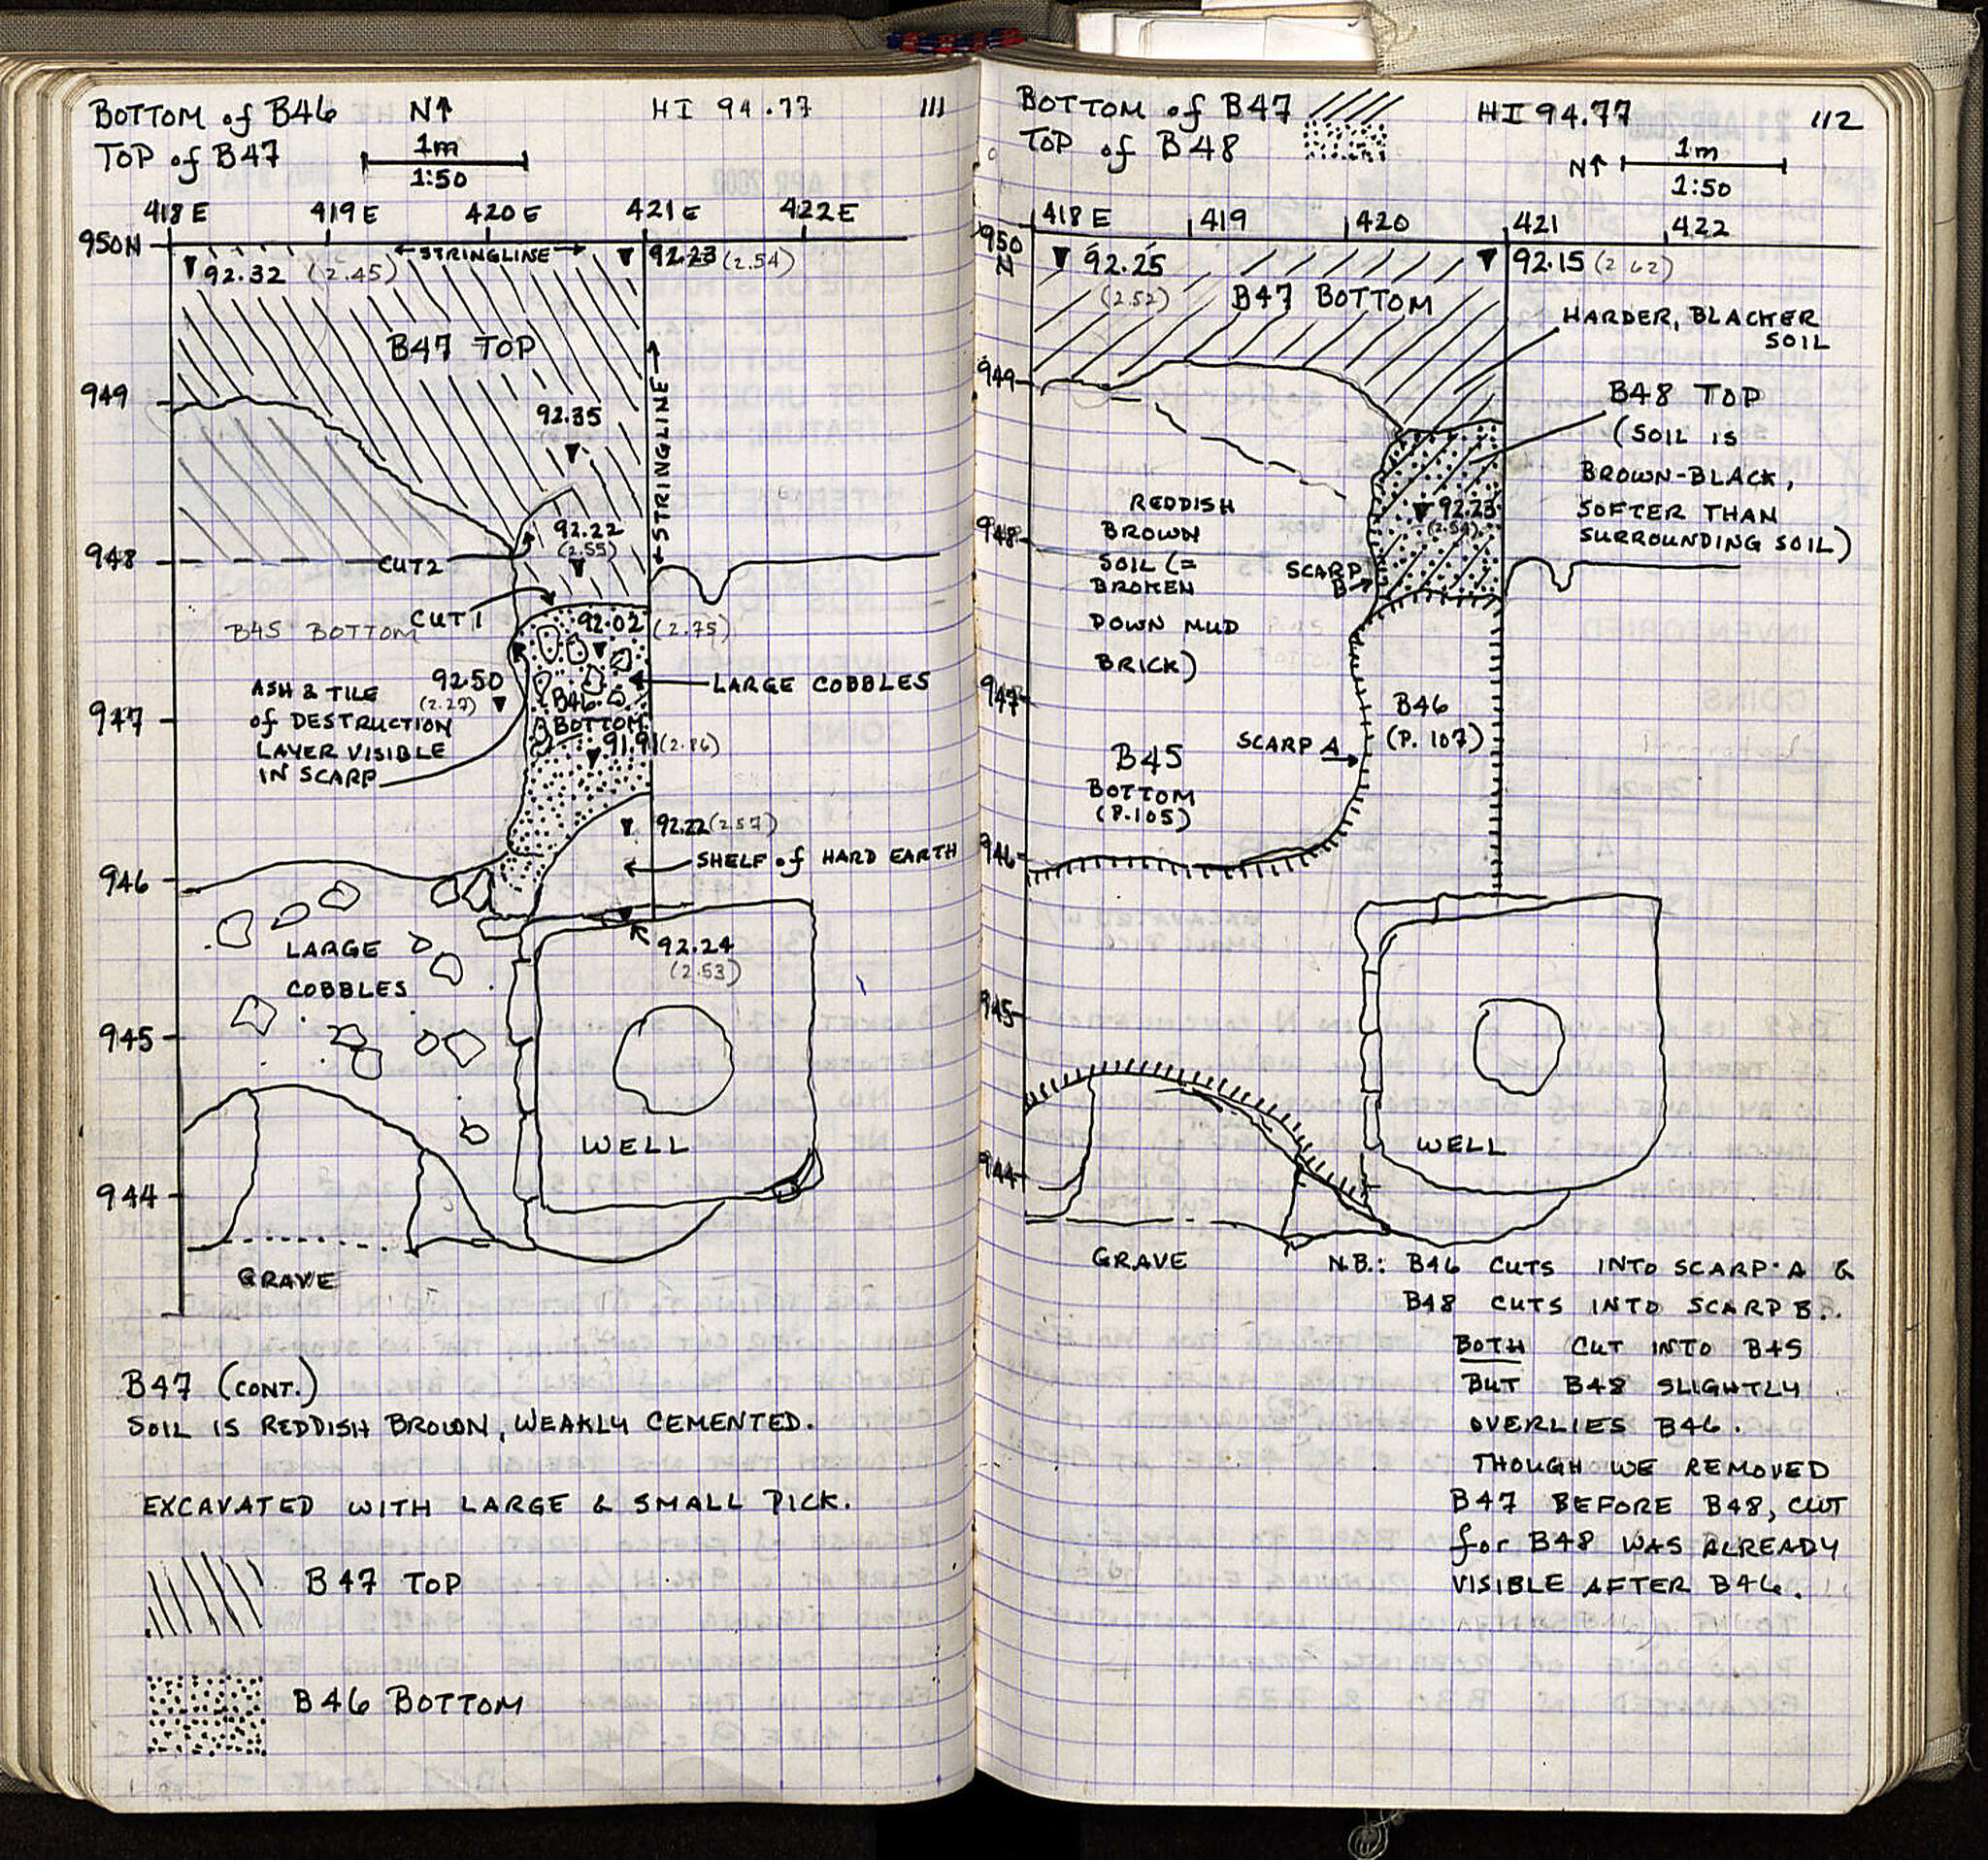 BOTTOM of B46 N↑ HI 94.77 111
TOP of B47 1m
1:50
418 E 419 E 420 E 421 E 422 E
950N
←STRINGLINE→
▼ 92.32 (2.45)
▼ 92.23 (2.54)
B47 TOP
←STRINGLINE→
949
92.35
92.22
(2.55)
948
CUT 2
CUT 1
B45 BOTTOM
92.02 (2.75)
92.50
(2.27)
ASH & TILE
of DESTRUCTION
LAYER VISIBLE
IN SCARP
LARGE COBBLES
947
B46
BOTTOM
91.91 (2.86)
92.22 (2.57)
SHELF of HARD EARTH
946
92.24
(2.53)
LARGE
COBBLES
945
WELL
944
GRAVE
B47 (CONT.)
SOIL IS REDDISH BROWN, WEAKLY CEMENTED.
EXCAVATED WITH LARGE & SMALL PICK.
B47 TOP
B46 BOTTOM
BOTTOM of B47 HI 94.77 112
TOP of B48
N↑ 1m
1:50
418 E 419 420 421 422
950
N
▼ 92.25
(2.52)
▼ 92.15 (2.62)
B47 BOTTOM
HARDER, BLACKER
SOIL
949
B48 TOP
(SOIL IS
BROWN-BLACK,
SOFTER THAN
SURROUNDING SOIL)
92.23
(2.54)
REDDISH
BROWN
SOIL (=
BROKEN
DOWN MUD
BRICK)
948
SCARP
B
947
B46
(P. 107)
SCARP A
B45
BOTTOM
(P.105)
946
945
WELL
944
GRAVE
N.B.: B46 CUTS INTO SCARP A &
B48 CUTS INTO SCARP B.
BOTH CUT INTO B45
BUT B48 SLIGHTLY
OVERLIES B46.
THOUGH WE REMOVED
B47 BEFORE B48, CUT
for B48 WAS ALREADY
VISIBLE AFTER B46.